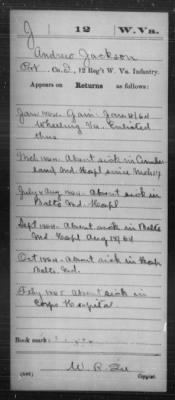 J | 12 | W.Va.
Andrew Jackson
Pvt, Co. D, 12 Reg't W. Va. Infantry.
Appears on Returns as follows:
Jany 1864 Gain Jan 4/64
Wheeling Va. Enlisted
Mch 1864 Absent sick in Cumber
land Md Hospl since Mch 17
July & Aug 1864 Absent sick in
Balto Md. Hospl
Sept 1864 Absent sick in Balto
Md Hospl Aug 18/64
Oct 1864 Absent sick in Hosp
Balto, Md.
Feby 1865 absent sick in
Corps Hospital
Book mark:
W. R.
(546) Copyist.